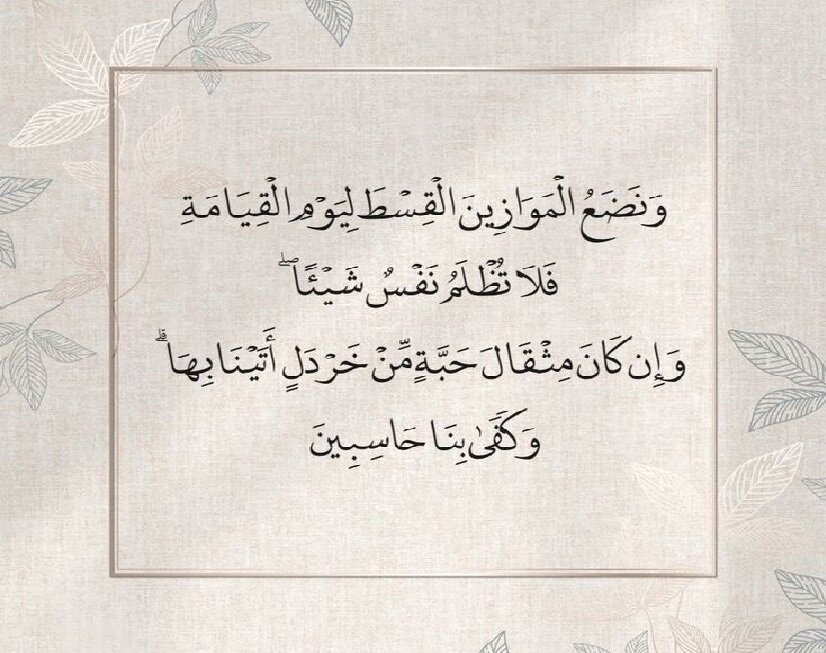 وَنَضَعُ الْمَوَازِينَ الْقِسْطَ لِيَوْمِ الْقِيَامَةِ
فَلَا تُظْلَمُ نَفْسٌ شَيْئًا ۖ
وَإِن كَانَ مِثْقَالَ حَبَّةٍ مِّنْ خَرْدَلٍ أَتَيْنَا بِهَا ۗ
وَكَفَىٰ بِنَا حَاسِبِينَ